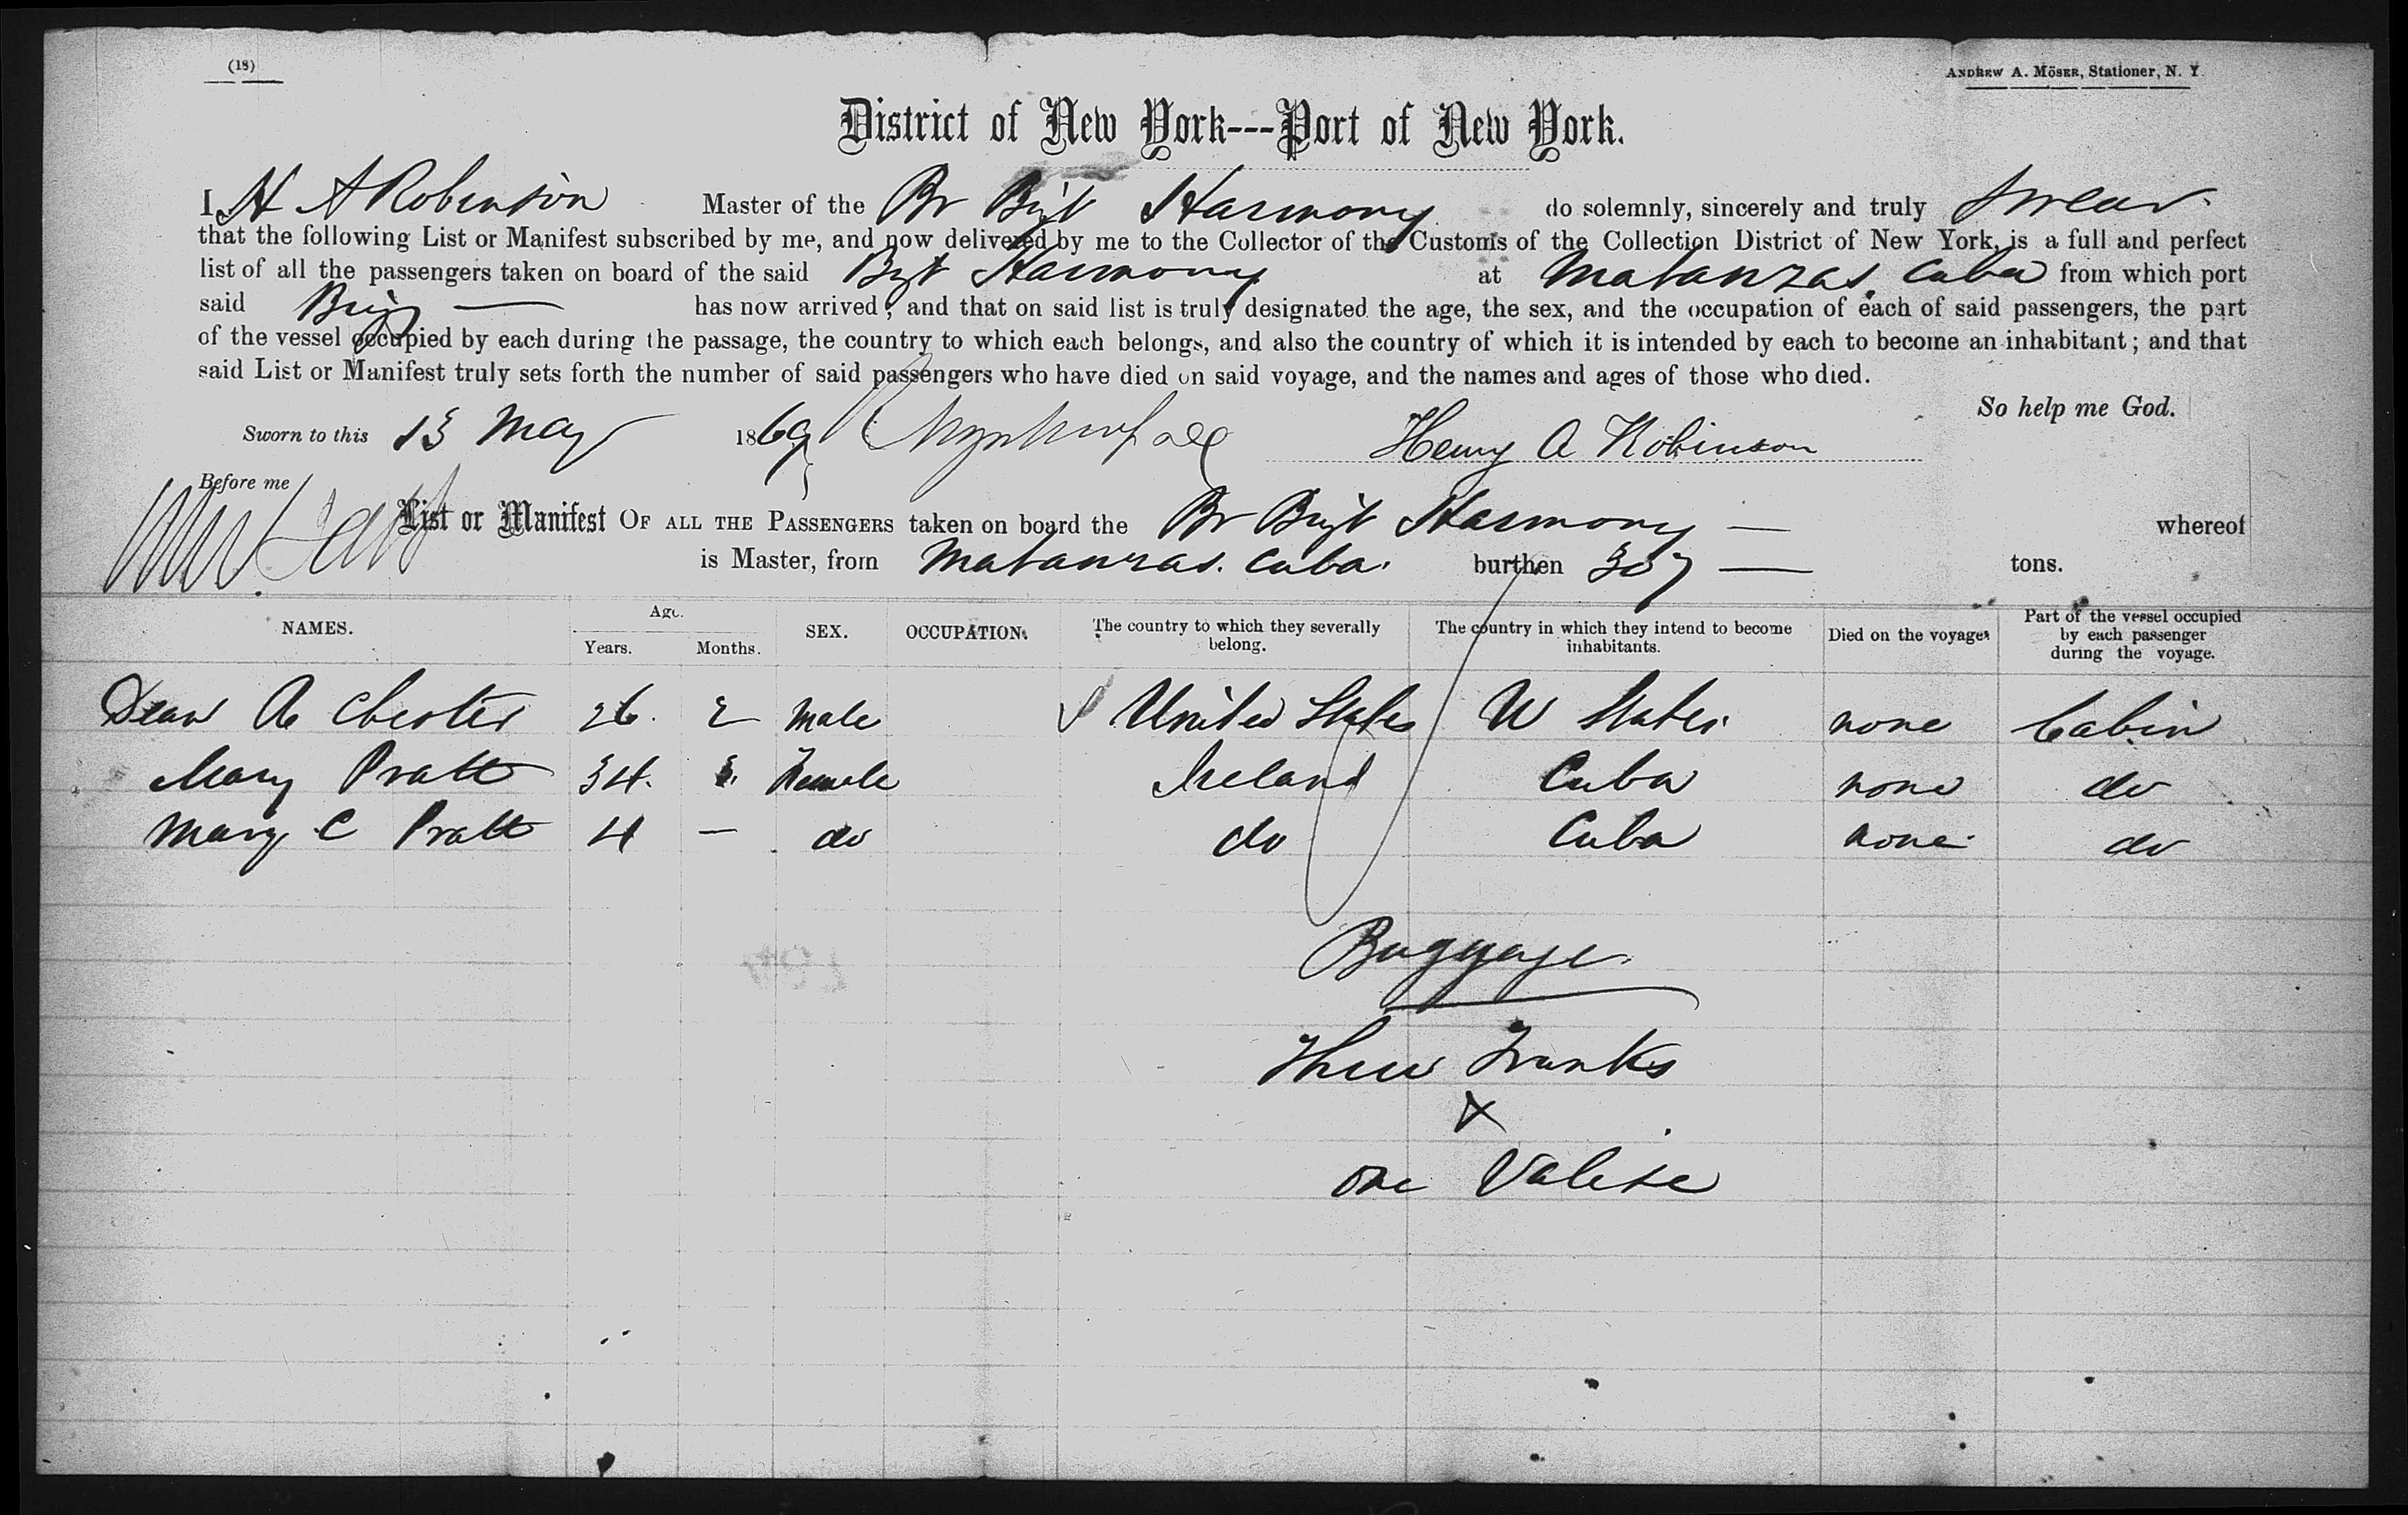 (18)
ANDREW A. MÖSER, Stationer, N. Y
District of New York---Port of New York.
I, H A Robinson Master of the Br Bigt Harmony do solemnly, sincerely and truly swear
that the following List or Manifest subscribed by me, and now delivered by me to the Collector of the Customs of the Collection District of New York, is a full and perfect
list of all the passengers taken on board of the said Bgt Harmony at Matanzas, Cuba from which port
said Brig — has now arrived; and that on said list is truly designated the age, the sex, and the occupation of each of said passengers, the part
of the vessel occupied by each during the passage, the country to which each belongs, and also the country of which it is intended by each to become an inhabitant; and that
said List or Manifest truly sets forth the number of said passengers who have died on said voyage, and the names and ages of those who died.
So help me God.
Sworn to this 13 May 1869 Henry A Robinson
Before me
List or Manifest OF ALL THE PASSENGERS taken on board the Br Brigt Harmony — whereof
is Master, from Matanzas. Cuba. burthen 307 — tons.
NAMES. Age. Years. Months. SEX. OCCUPATION. The country to which they severally belong. The country in which they intend to become inhabitants. Died on the voyage. Part of the vessel occupied by each passenger during the voyage.
Dean A Chester 26. 2 Male United States U States. none Cabin
Mary Pratt 34. Female Ireland Cuba none do
Mary C Pratt 4 — do do Cuba none do
Baggage.
Three Trunks
&
one Valise